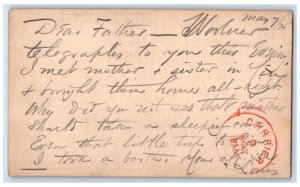 Dear Father — May 7/
telegraphed to you this Evening
I met mother & sister in
& brought them home all right
Why did you not see that mother
should take a sleeping car
Even that little trip
I took a Your
CARRIER